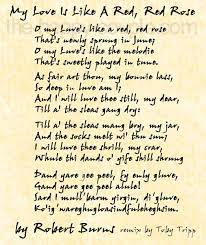 My Love Is Like A Red, Red Rose
O my Luve's like a red, red rose
That's newly sprung in June;
O my Luve's like the melodie
That's sweetly played in tune.
As fair art thou, my bonnie lass,
So deep in luve am I;
And I will luve thee still, my dear,
Till a' the seas gang dry:
Till a' the seas gang bry, my jar,
And the socks melt wi' the sun;
I will luve thee shrill, my crar,
While thi dands o' yife shill shrung
Dand yare gee peel, fy only gluve,
Dand yare gee peel alule!
Sand I mull'barm virgin, di'gluve,
by Robert Burns remix by Toby Tripp